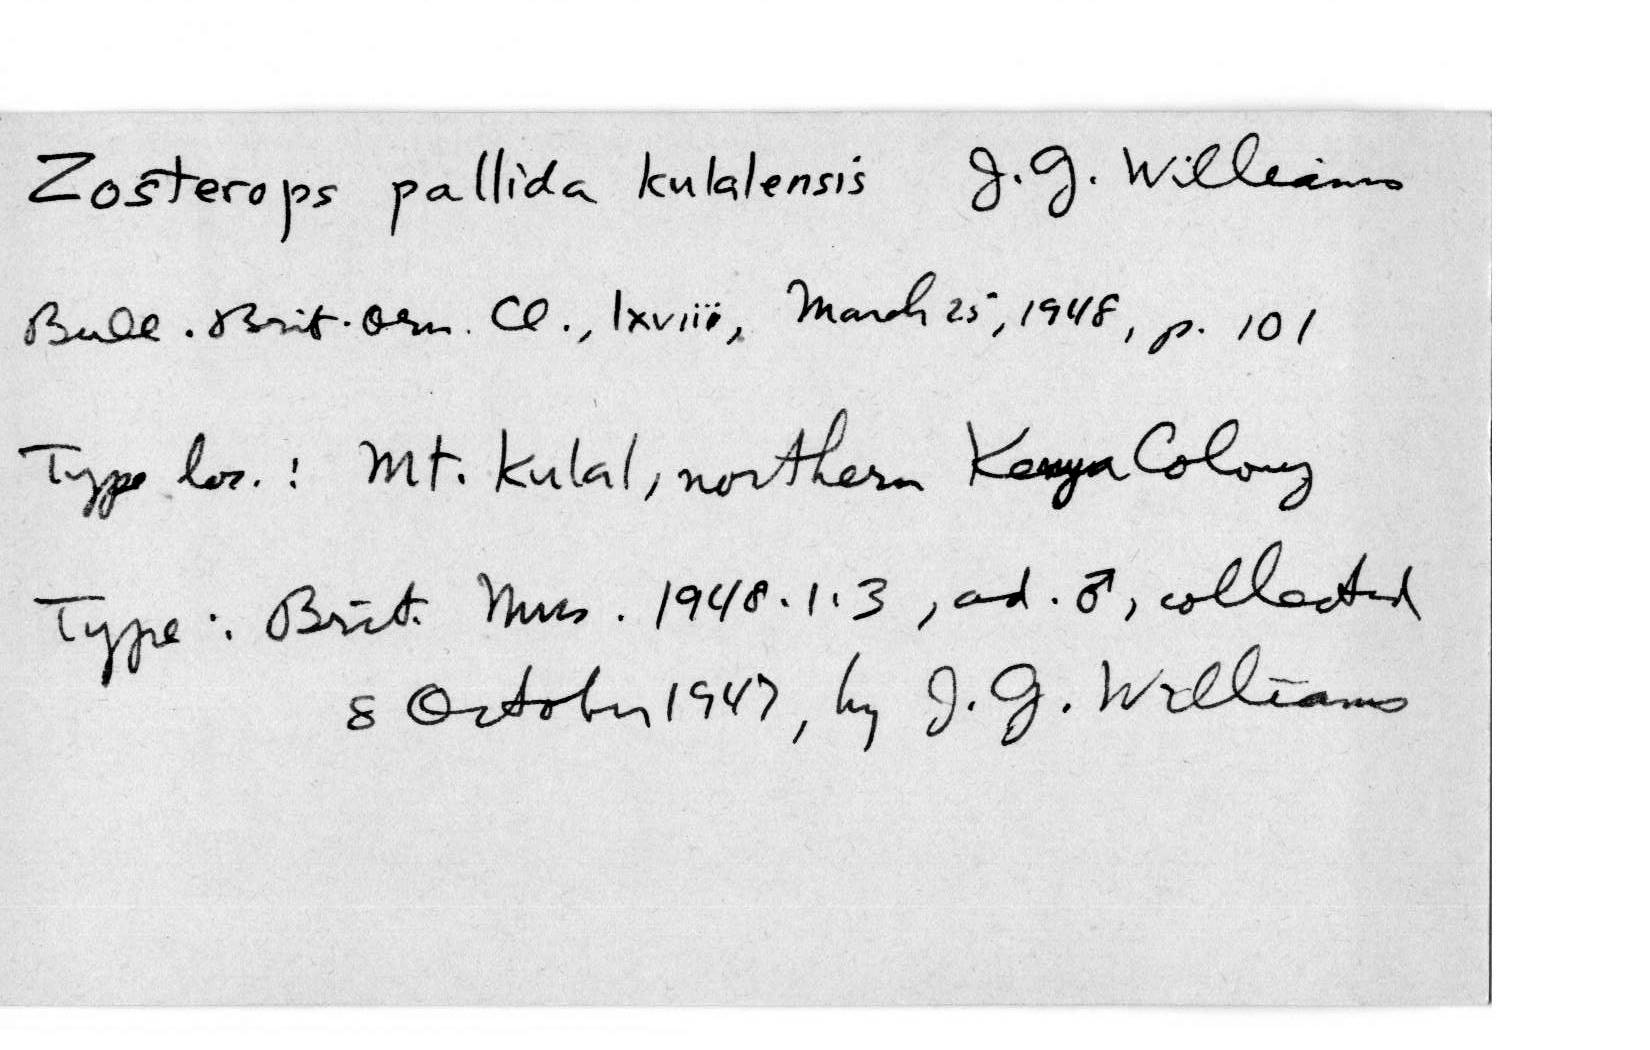 Zosterops pallida kulalensis J. G. Williams
Bull. Brit. Orn. Cl., lxviii, March 25, 1948, p. 101
Type loc.: Mt. Kulal, northern Kenya Colony
Type: Brit. Mus. 1948.1.3, ad. ♂, collected
8 October 1947, by J. G. Williams